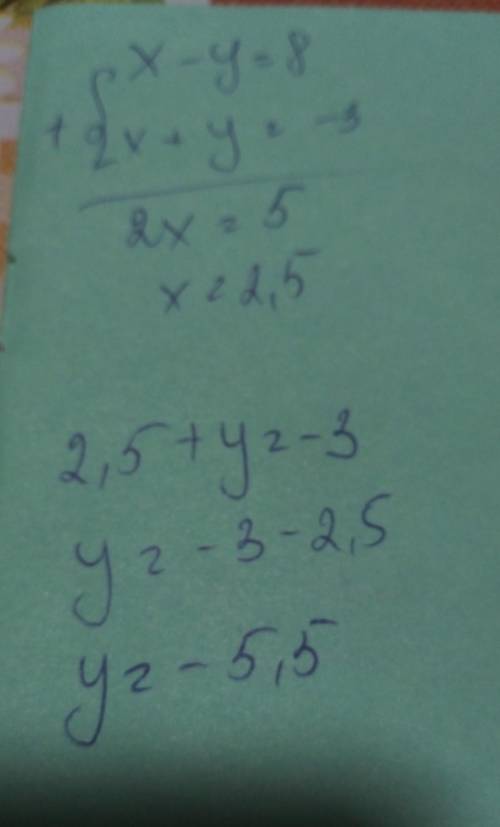 x - y = 8
+ x + y = -3
2x = 5
x = 2,5
2,5 + y = -3
y = -3 - 2,5
y = -5,5